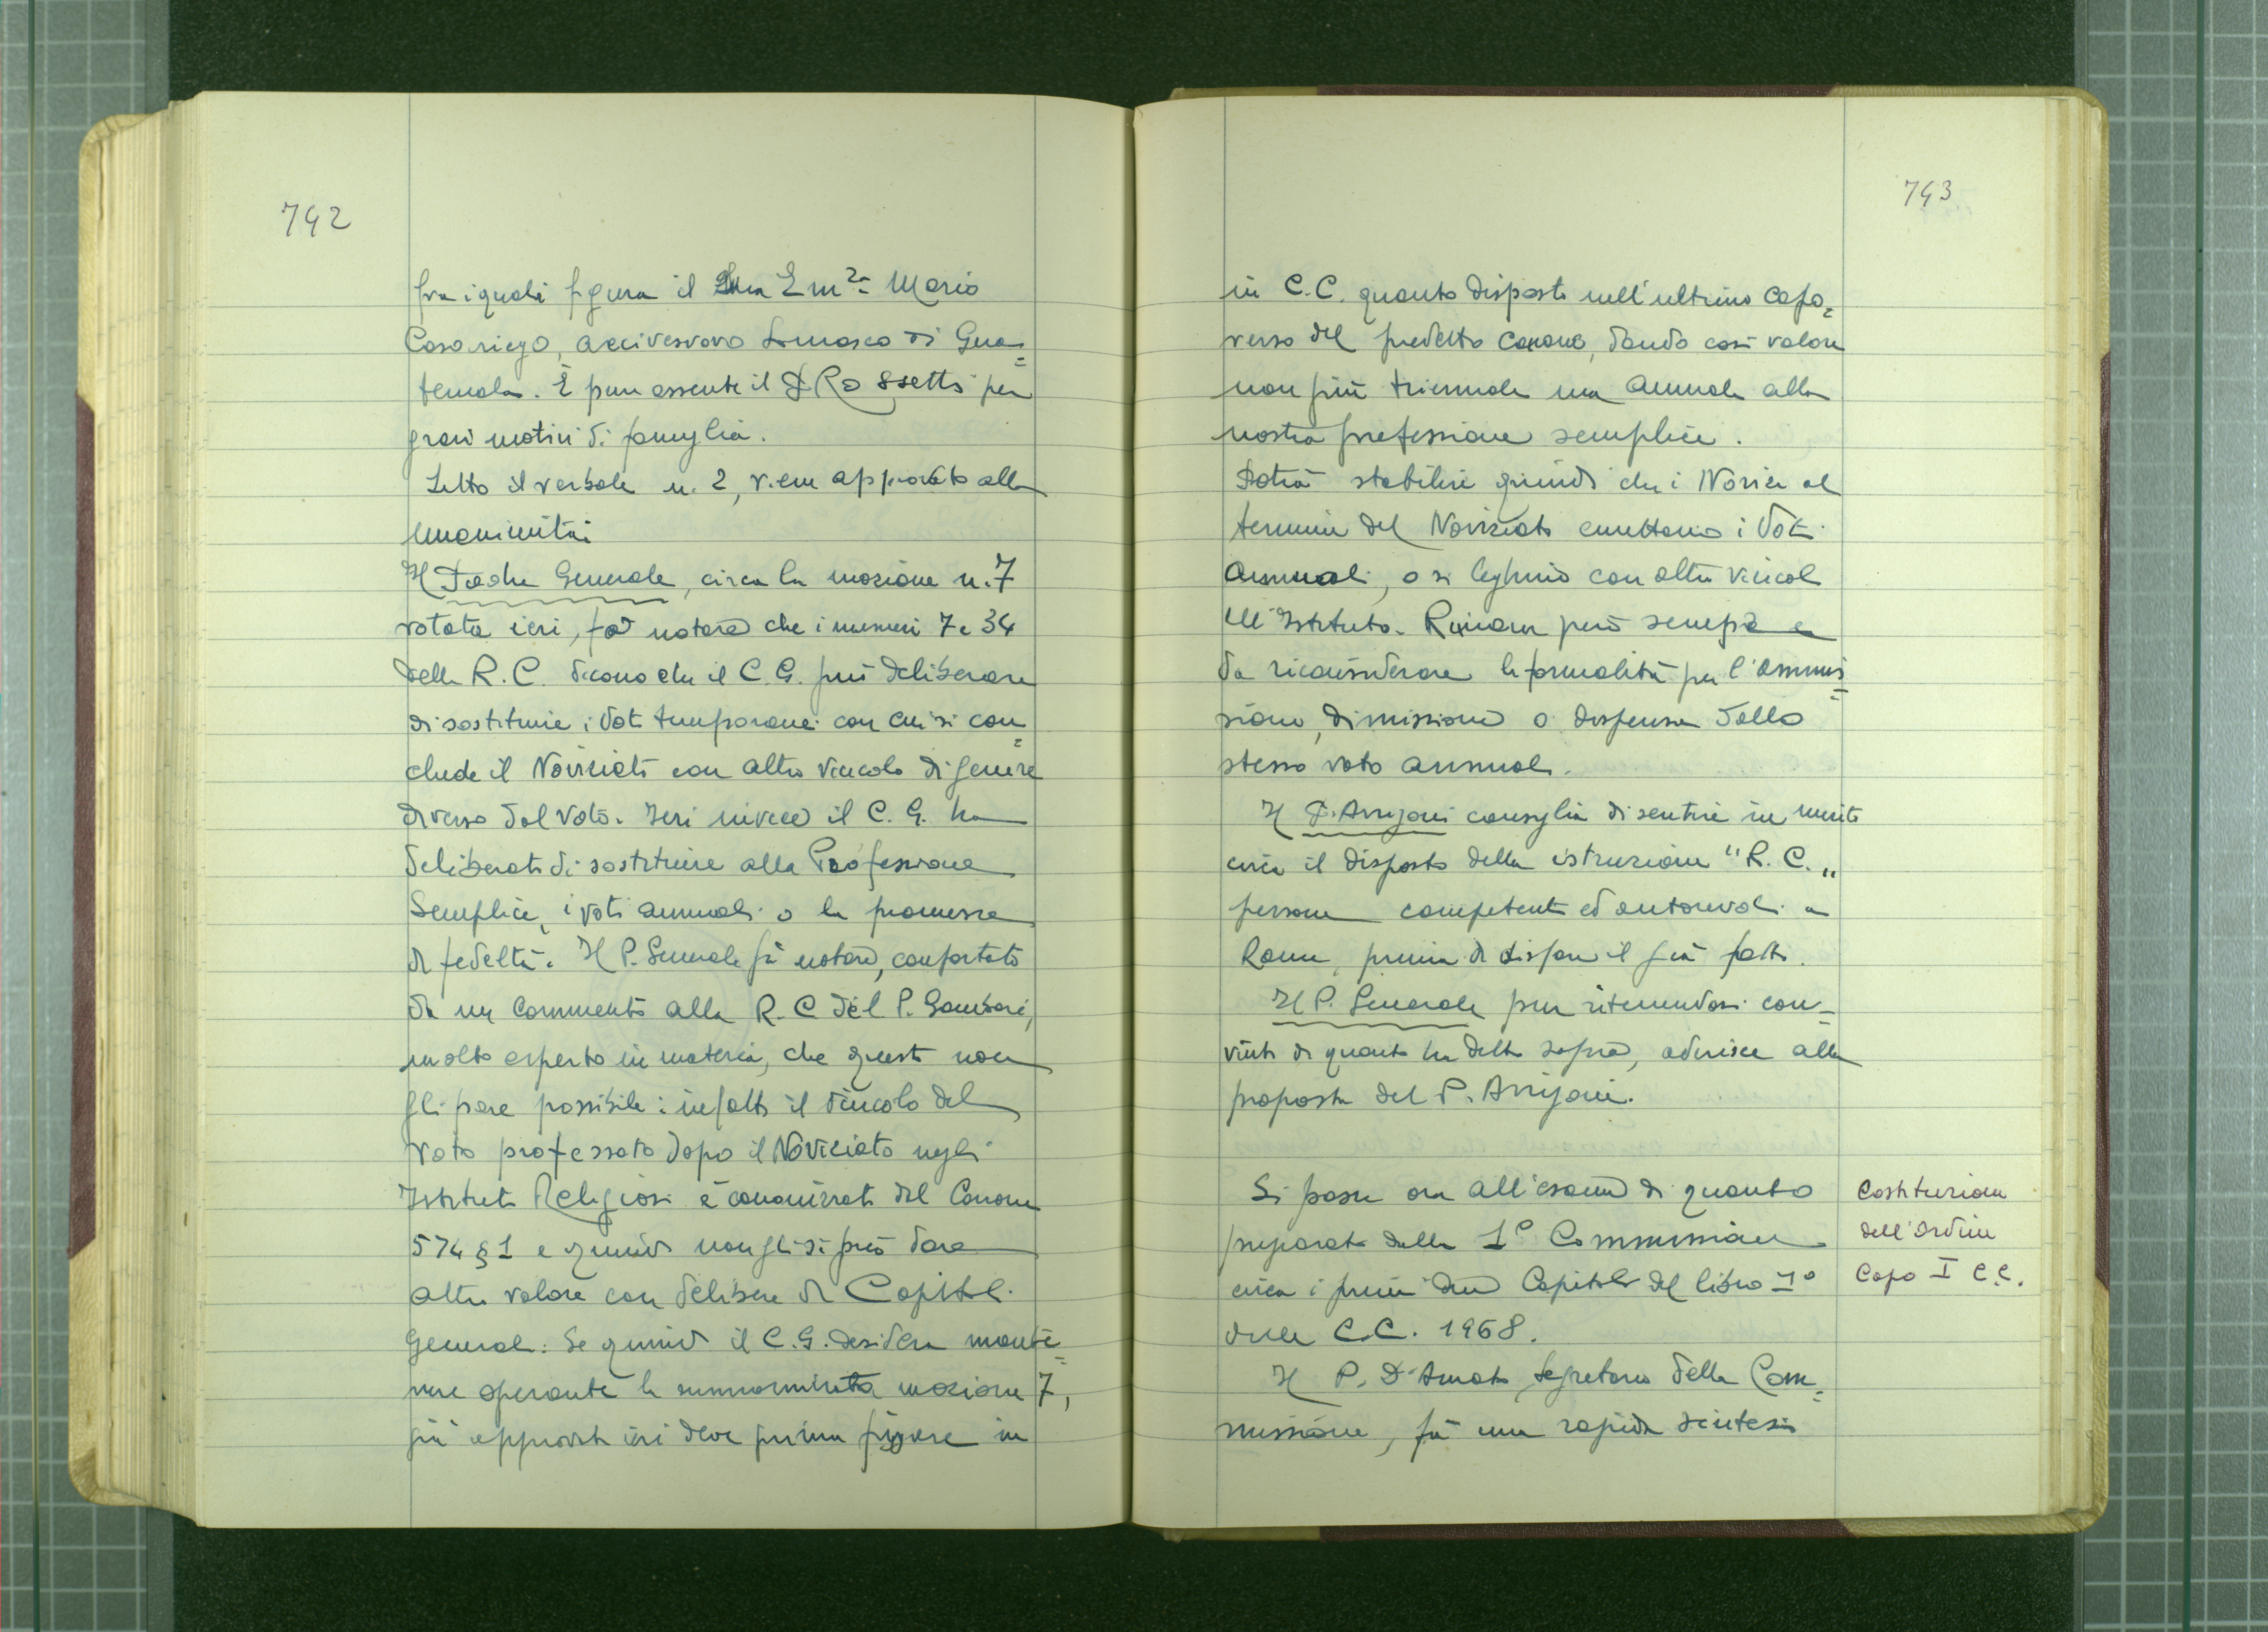 742
fra i quali figura il Sua Em.za Mario
Casariego, Arcivescovo Somasco di Gua=
temala. È pure assente il P. Rossetti per
gravi motivi di famiglia.
Letto il verbale n. 2, viene approvato alla
unanimità.
Il Padre Generale, circa la mozione n. 7
votata ieri, fa notare che i numeri 7 e 34
della R. C. dicono che il C. G. può deliberare
di sostituire i Voti temporanei con cui si con=
clude il Noviziato con altro vincolo di genere
diverso dal voto. Ieri invece il C. G. ha
deliberato di sostituire alla Professione
Semplice, i voti annuali o la promessa
di fedeltà. Il P. Generale fà notare, confortato
da un commento alla R. C del P. Gambari,
molto esperto in materia, che questo non
gli pare possibile: infatti il vincolo del
voto professato dopo il Noviziato negli
Istituti Religiosi è canonizzato dal Canone
574 § 1 e quindi non gli si può dare
altro valore con delibere di Capitoli
Generali. Se quindi il C. G. desidera mante=
nere operante la summominata mozione 7,
già approvata ieri deve prima figgere in
743
in C. C. quanto disposto nell'ultimo capo=
verso del predetto Canone, dando così valore
non più triennale ma annuale alla
nostra professione semplice.
Potrà stabilire quindi che i Novizi al
termine del Noviziato emettano i Voti
annuali, o si leghino con altri vincoli
all'Istituto. Rimane però sempre
da riconsiderare la formalità per l'ammis=
sione, dimissione o dispensa dallo
stesso voto annuale.
Il P. Arrigoni consiglia di sentire in merito
circa il disposto della istruzione "R. C. "
persone competenti ed autorevoli a
Roma, prima di disfare il già fatto.
Il P. Generale pur ritenendosi con-
vinto di quanto ha detto sopra, aderisce alla
proposta del P. Arrigoni.
Si passa ora all'esame di quanto
preparato dalla 1ª Commissione
circa i primi due Capitoli del libro Iº
delle C.C. 1968.
Il P. D'Amato, Segretario della Com=
missione, fà una rapida sintesi
Costituzioni
dell'Ordine
Capo I C.C.